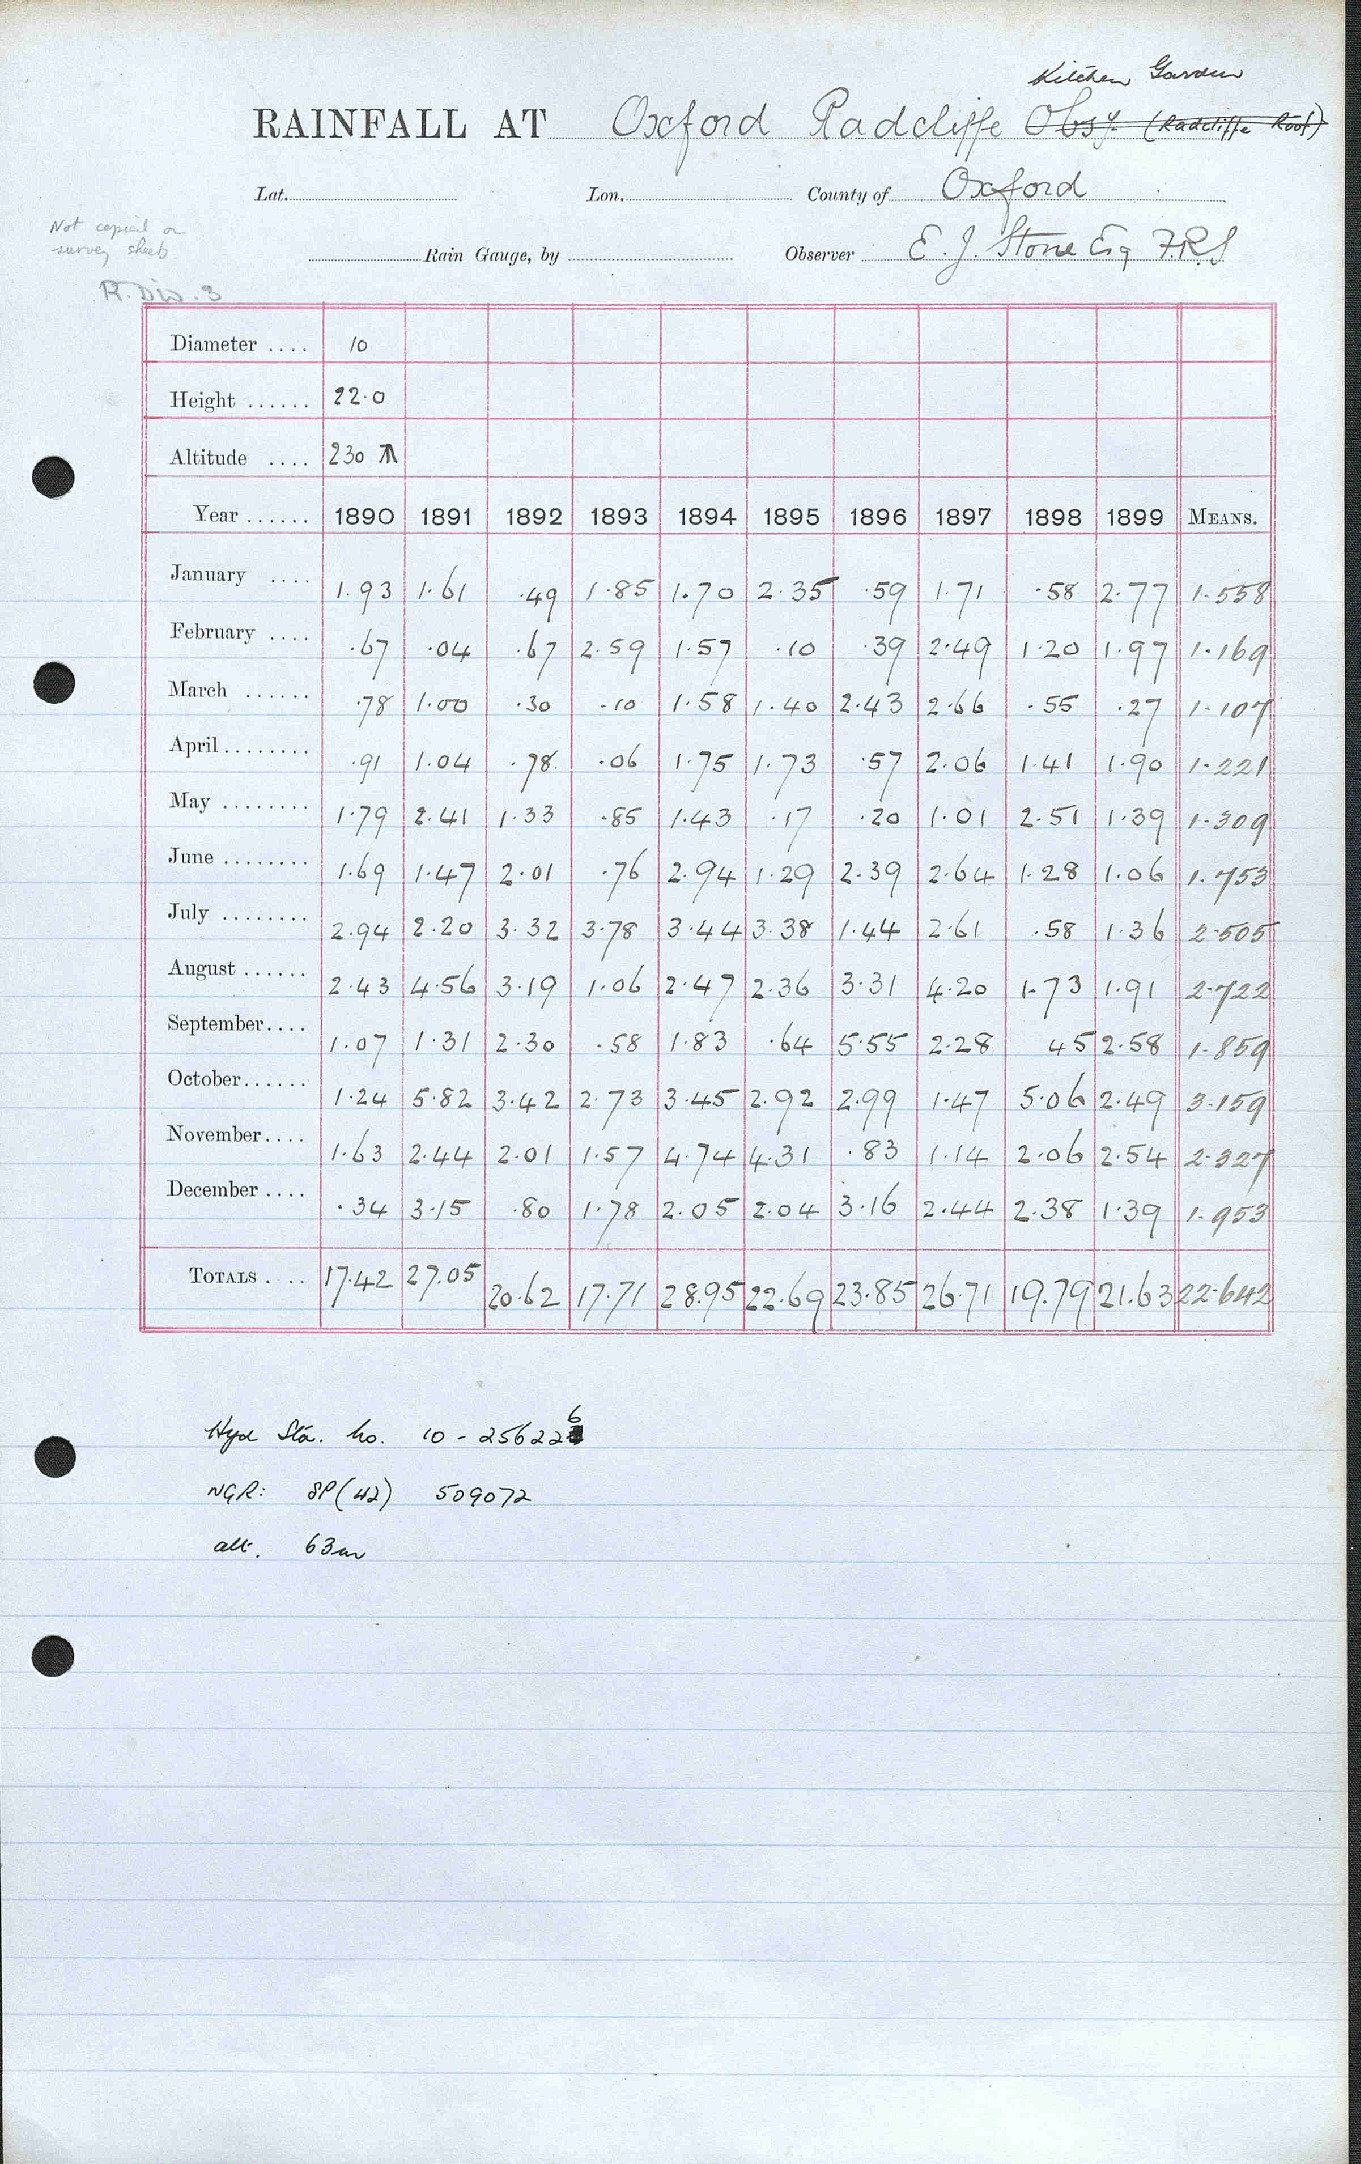 Kitchen Garden
RAINFALL AT Oxford Radcliffe Obsy. (Radcliffe Roof)
Lat. Lon. County of Oxford
Not copied on
survey sheets
Rain Gauge, by Observer E. J. Stone Esq F.R.S
R. Div. 3
Diameter .... 10
Height ...... 22.0
Altitude .... 230
Year ...... 1890 1891 1892 1893 1894 1895 1896 1897 1898 1899 MEANS.
January .... 1.93 1.61 .49 1.85 1.70 2.35 .59 1.71 .58 2.77 1.558
February .... .67 .04 .67 2.59 1.57 .10 .39 2.49 1.20 1.97 1.169
March ...... .78 1.00 .30 .10 1.58 1.40 2.43 2.66 .55 .27 1.107
April ........ .91 1.04 .78 .06 1.75 1.73 .57 2.06 1.41 1.90 1.221
May ........ 1.79 2.41 1.33 .85 1.43 .17 .20 1.01 2.51 1.39 1.309
June ........ 1.69 1.47 2.01 .76 2.94 1.29 2.39 2.64 1.28 1.06 1.753
July ........ 2.94 2.20 3.32 3.78 3.44 3.38 1.44 2.61 .58 1.36 2.505
August ...... 2.43 4.56 3.19 1.06 2.47 2.36 3.31 4.20 1.73 1.91 2.722
September.... 1.07 1.31 2.30 .58 1.83 .64 5.55 2.28 45 2.58 1.859
October...... 1.24 5.82 3.42 2.73 3.45 2.92 2.99 1.47 5.06 2.49 3.159
November.... 1.63 2.44 2.01 1.57 4.74 4.31 .83 1.14 2.06 2.54 2.327
December .... .34 3.15 .80 1.78 2.05 2.04 3.16 2.44 2.38 1.39 1.953
TOTALS .... 17.42 27.05 20.62 17.71 28.95 22.69 23.85 26.71 19.79 21.63 22.642
Hyd Sta. No. 10 - 256226
NGR: SP(42) 509072
alt. 63m